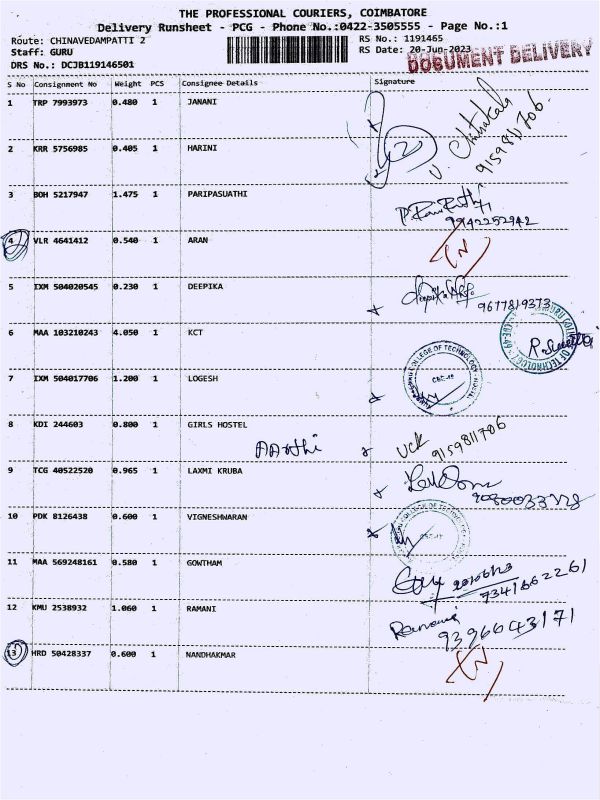 THE PROFESSIONAL COURIERS, COIMBATORE
Delivery Runsheet - PCG - Phone No.:0422-3505555 - Page No.:1
Route: CHINAVEDAMPATTI 2 RS No.: 1191465
Staff: GURU RS Date: 20-Jun-2023
DOCUMENT DELIVERY
DRS No.: DCJB119146501
S No Consignment No Weight PCS Consignee Details Signature
1 TRP 7993973 0.480 1 JANANI
2 KRR 5756985 0.405 1 HARINI 2 9159811706
3 BOH 5217947 1.475 1 PARIPASUATHI
9942252942
4 VLR 4641412 0.540 1 ARAN
5 IXM 504020545 0.230 1 DEEPIKA 9677819373
6 MAA 103210243 4.050 1 KCT
7 IXM 504017706 1.200 1 LOGESH COLLEGE OF TECHNOLOGY HOSTEL CBE-49
8 KDI 244603 0.800 1 GIRLS HOSTEL
AArthi 9159811706
9 TCG 40522520 0.965 1 LAXMI KRUBA
10 PDK 8126438 0.600 1 VIGNESHWARAN
11 MAA 569248161 0.580 1 GOWTHAM
7341662261
12 KMU 2538932 1.060 1 RAMANI Ramani
9396643171
13 HRD 50428337 0.600 1 NANDHAKMAR